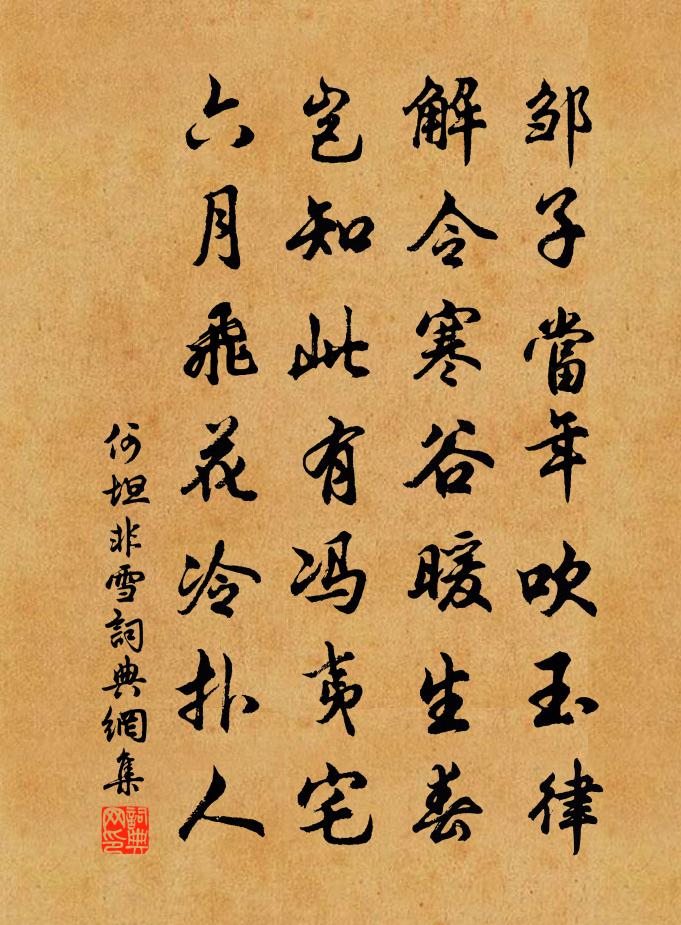 邹子當年吹玉律
解令寒谷暖生春
豈知此有冯夷宅
六月飛花冷扑人
何坦非雪詞典網集
詞典网印